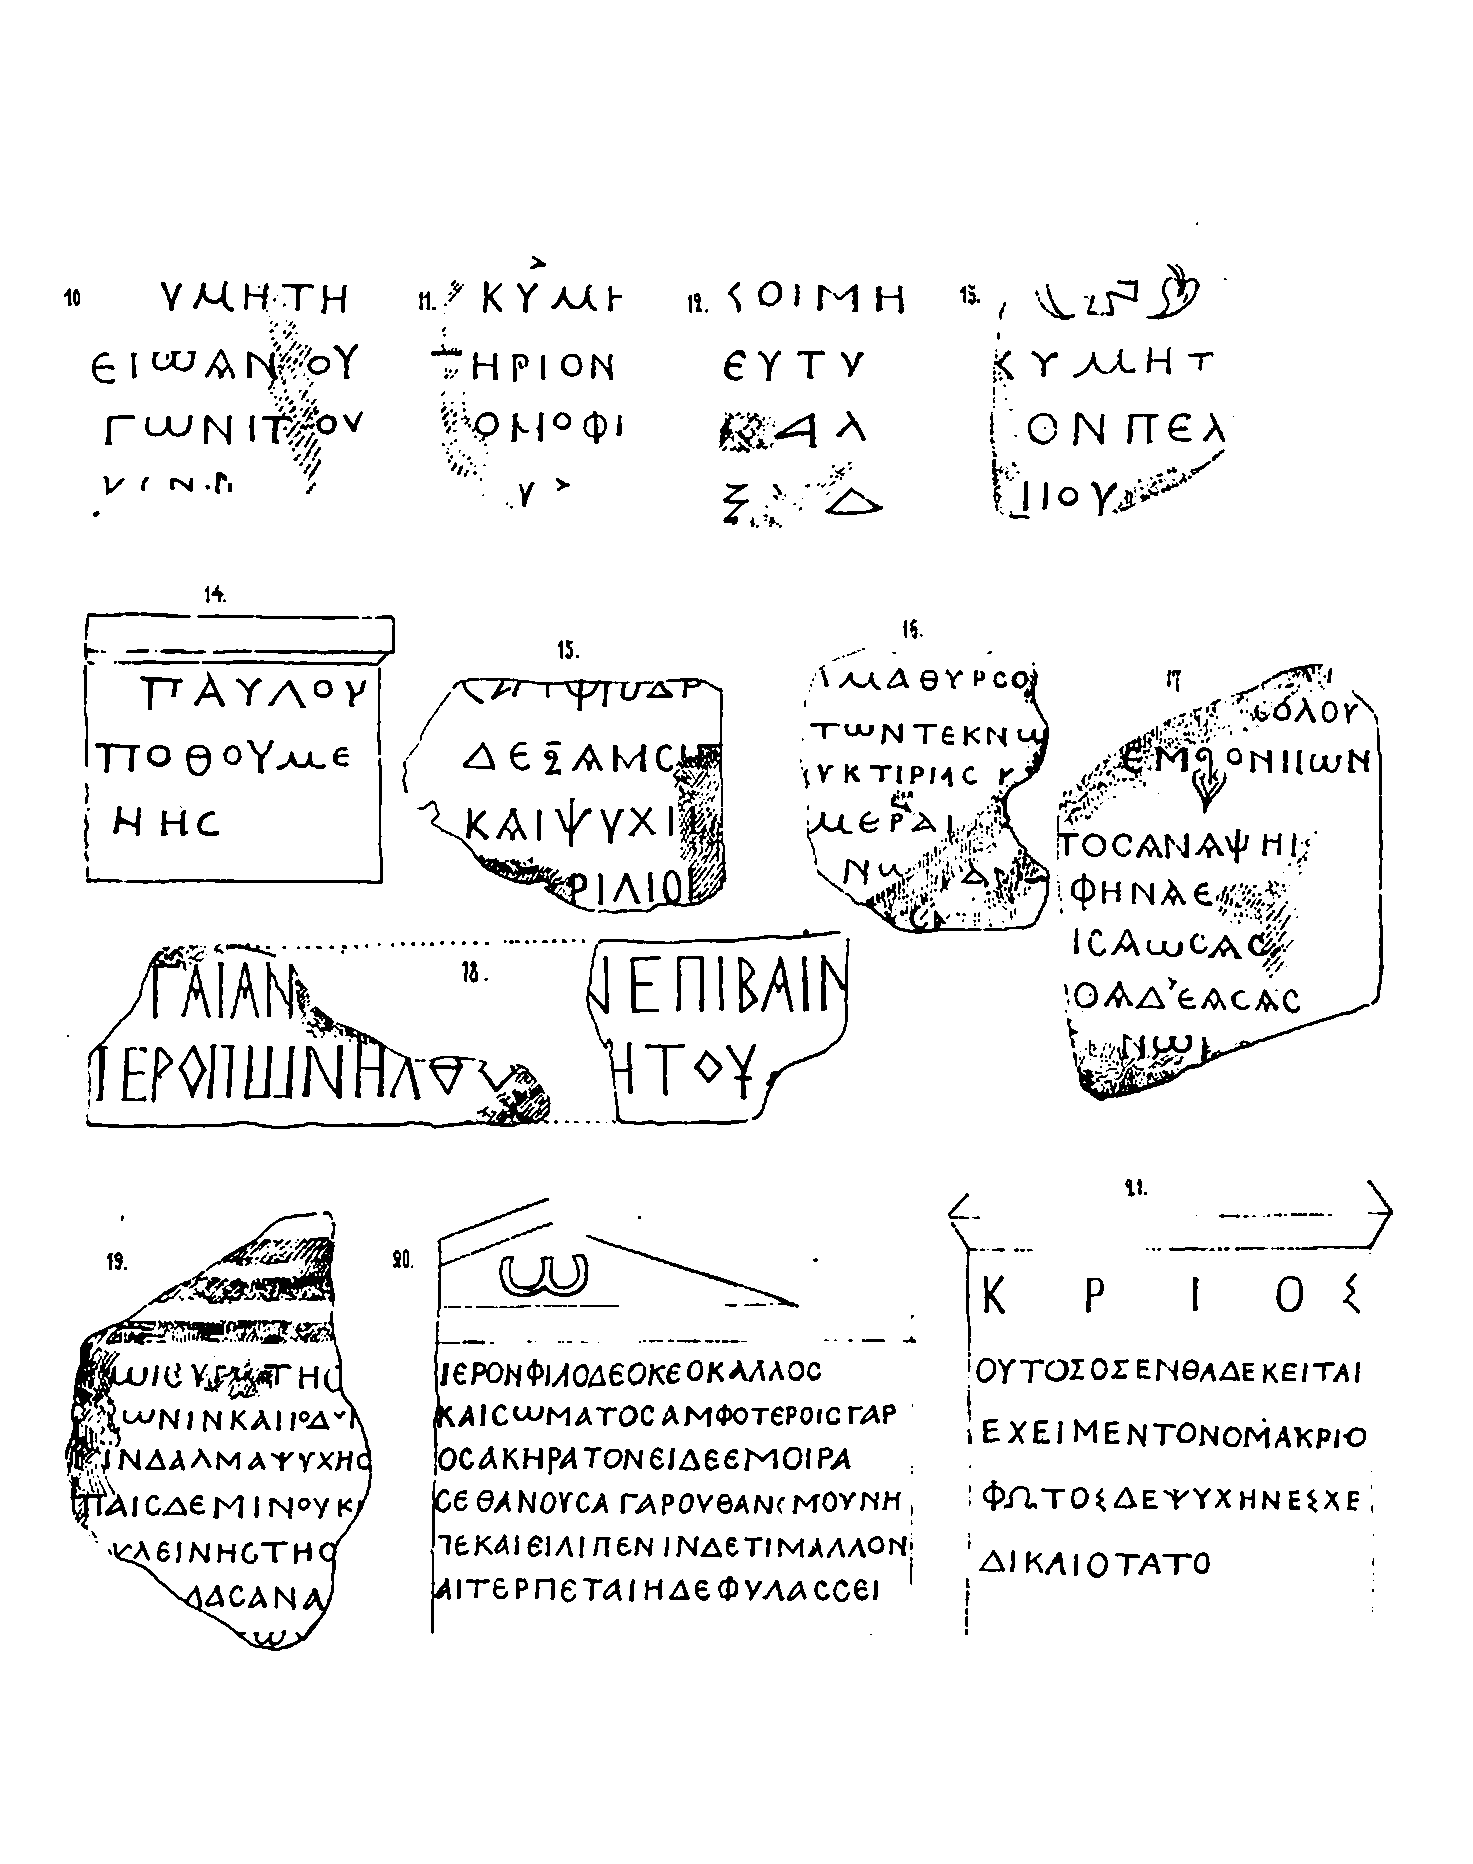 10
ΥΜΗΤΗ
ΕΙΩΑΝΟΥ
ΓΩΝΙΤΟΥ
11.
ΚΥΜΗ
ΤΗΡΙΟΝ
ΟΜΟΦΙ
Υ
12.
ϹΟΙΜΗ
ΕΥΤΥ
13.
ΚΥΜΗΤ
ΟΝΠΕΛ
ΠΟΥ
14.
ΠΑΥΛΟΥ
ΠΟΘΟΥΜΕ
ΗΗϹ
15.
ΔΕΞΑΜϹ
ΚΑΙΨΥΧΙ
ΡΙΛΙΟ
16.
ΜΑΘΥΡϹΟ
ΤΩΝΤΕΚΝΩ
ΥΚΤΙΡΙΑϹ
ΜΕΡΑΙ
17
ΟΛΟΥ
ΤΟϹΑΝΑΨΗΙ
ΦΗΝΑΕ
ΙϹΑΩϹΑϹ
ΟΑΔ'ΕΑϹΑϹ
ΝΩΙ
18.
ΓΑΙΑΝ ΝΕΠΙΒΑΙΝ
ΙΕΡΟΠΩΝΗΛΘΥ ΗΤΟΥ
19.
ΩΝΙΝΚΑΙΠΟΔΥ
ΙΝΔΑΛΜΑΨΥΧΗϹ
ΠΑΙϹΔΕΜΙΝΟΥΚ
ΚΛΕΙΝΗϹΤΗϹ
ΔΑϹΑΝΑ
Ω
20.
Ω
ΙΕΡΟΝΦΙΛΟΔΕΟΚΕΟΚΑΛΛΟϹ
ΚΑΙϹΩΜΑΤΟϹΑΜΦΟΤΕΡΟΙϹΓΑΡ
ΟϹΑΚΗΡΑΤΟΝΕΙΔΕΕΜΟΙΡΑ
ϹΕΘΑΝΟΥϹΑΓΑΡΟΥΘΑΝϹΜΟΥΝΗ
ΠΕΚΑΙΕΙΛΙΠΕΝΙΝΔΕΤΙΜΑΛΛΟΝ
ΑΙΤΕΡΠΕΤΑΙΗΔΕΦΥΛΑϹϹΕΙ
21.
Κ Ρ Ι Ο Σ
ΟΥΤΟΣΟΣΕΝΘΑΔΕΚΕΙΤΑΙ
ΕΧΕΙΜΕΝΤΟΝΟΜΑΚΡΙΟ
ΦΩΤΟΣΔΕΨΥΧΗΝΕΣΧΕ
ΔΙΚΑΙΟΤΑΤΟ